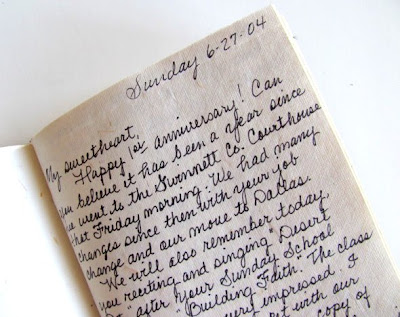 Sunday 6-27-04
My sweetheart,
Happy 1st anniversary! Can
you believe it has been a year since
we went to the Gwinnett Co. Courthouse
that Friday morning. We had many
changes since then with your job
change and our move to Dallas.
"We will also remember today,
you reciting and singing, Desert
" after "Your Sunday School
"Building Faith". The class
very impressed. I
with our
copy of